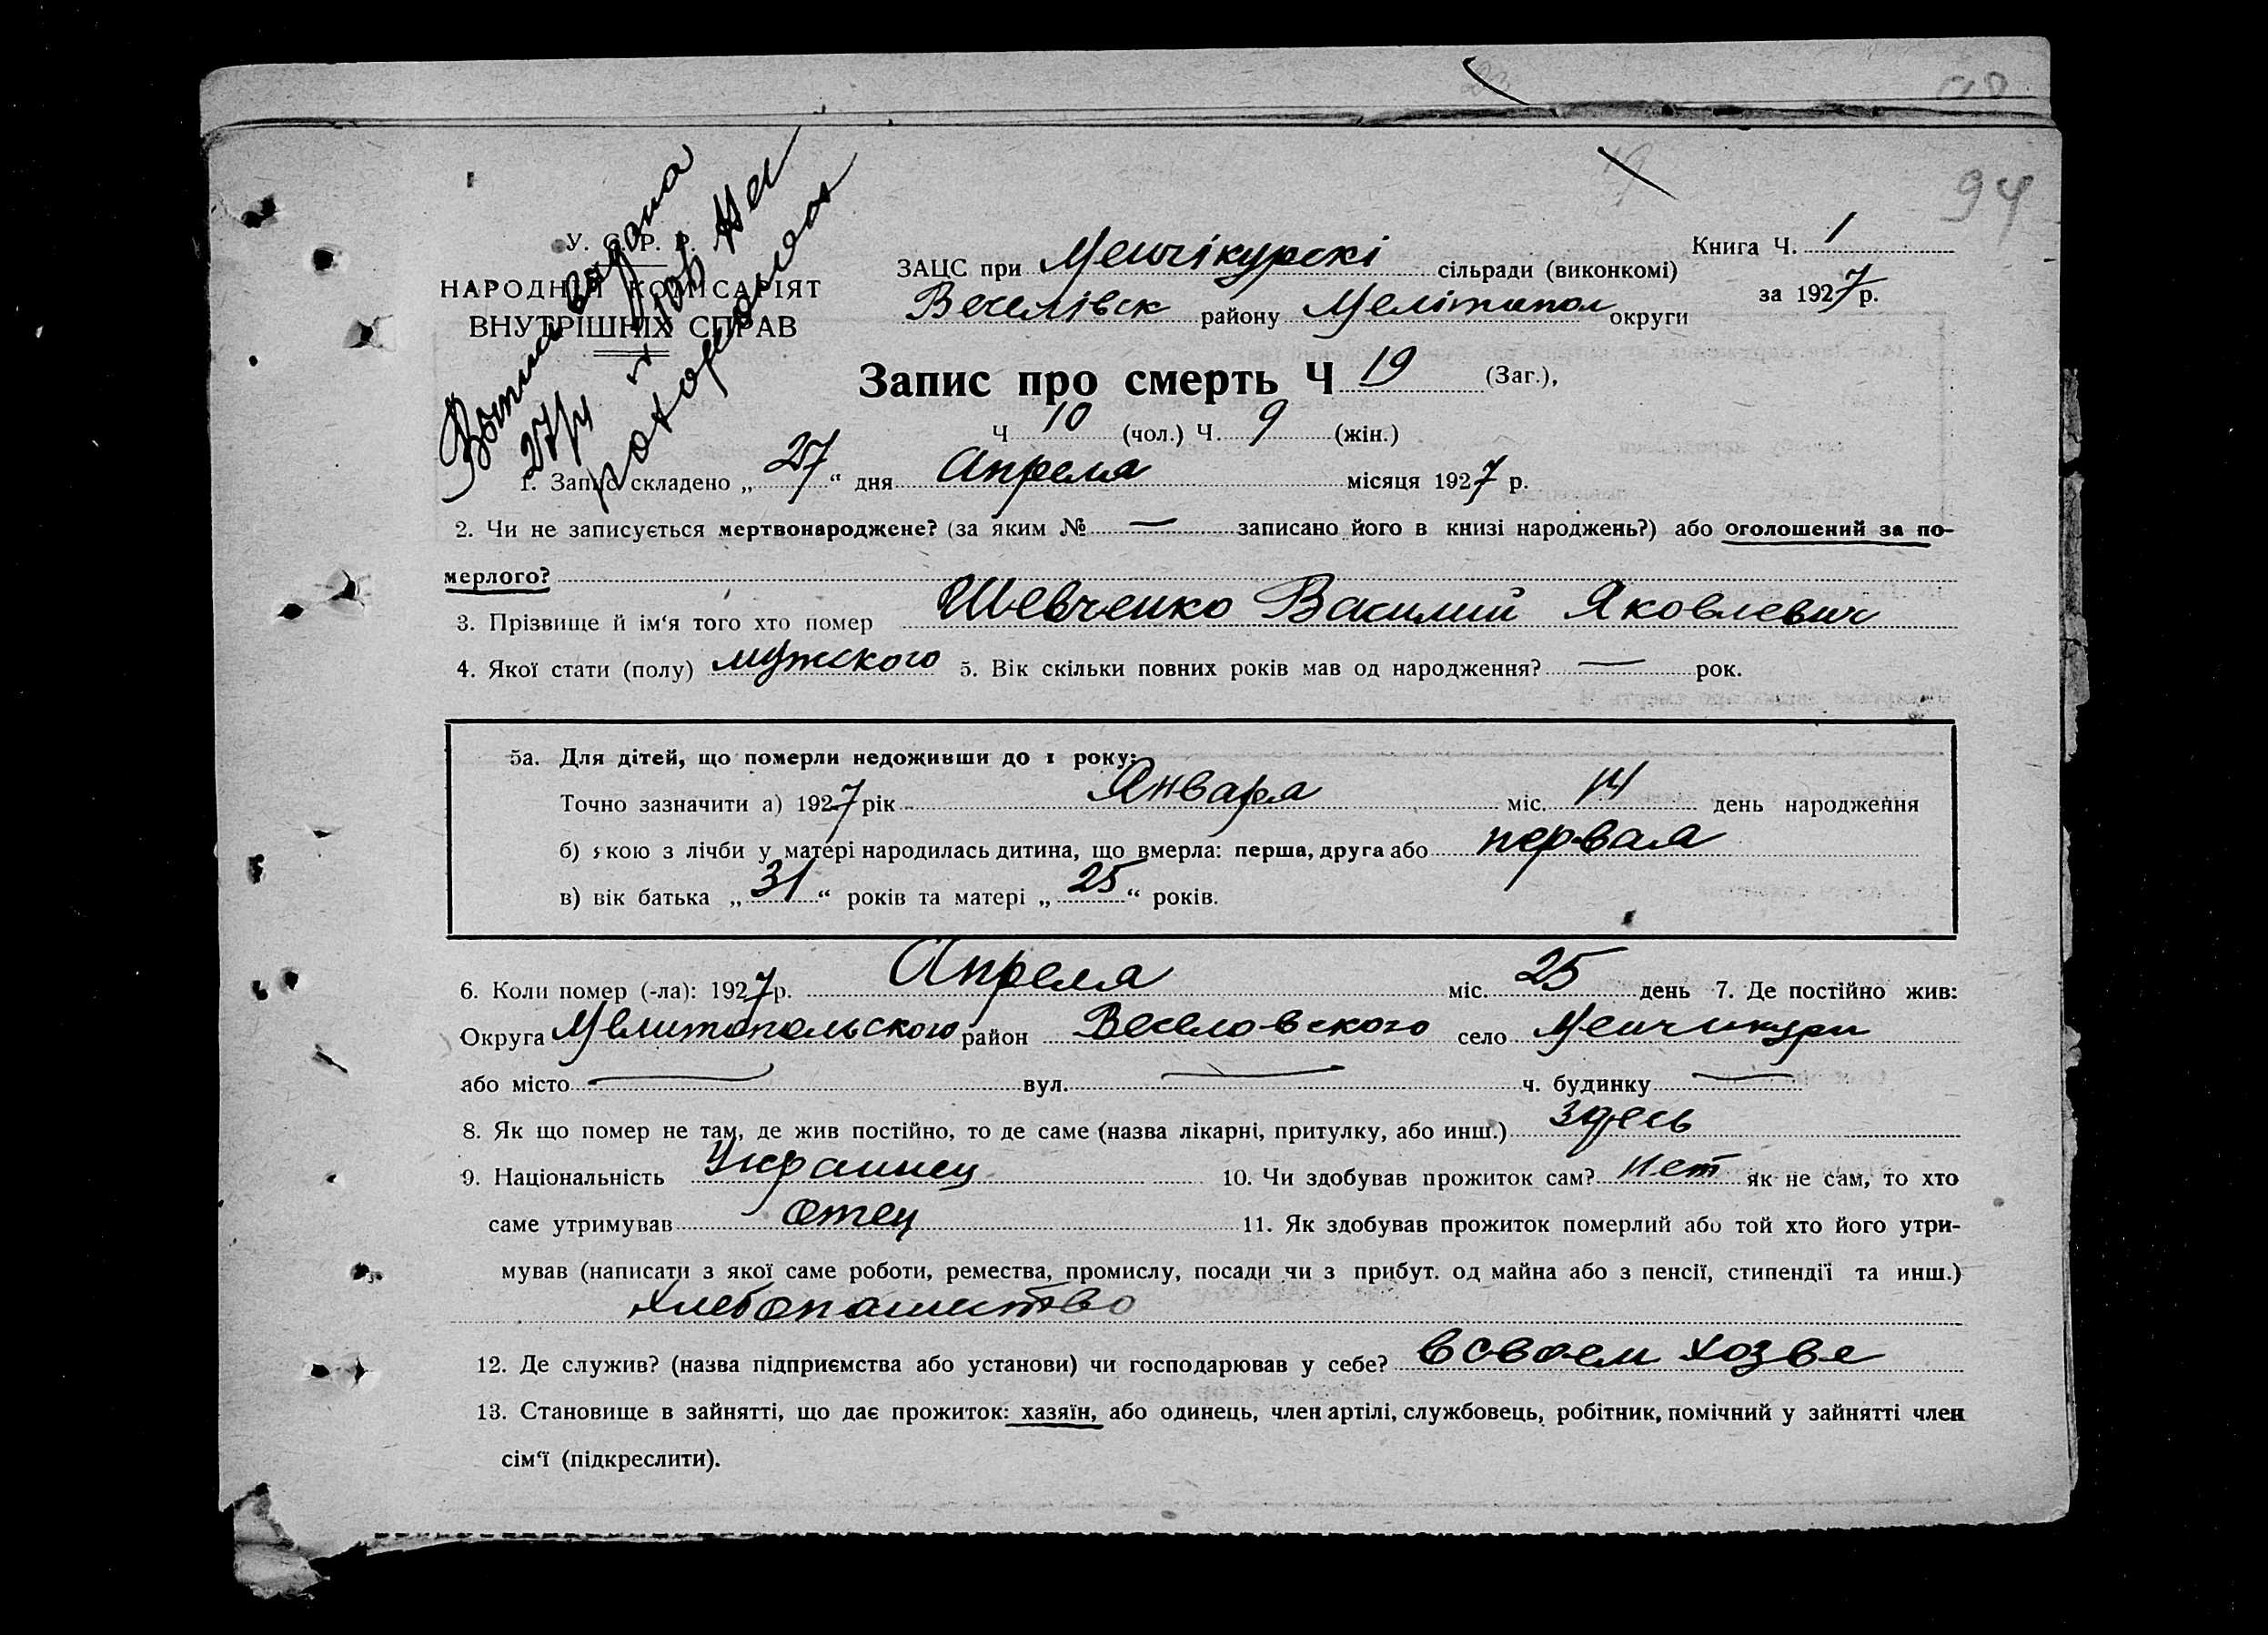 94
У. С. Р. Р.
НАРОДНІЙ КОМІСАРІЯТ
ВНУТРІШНІХ СПРАВ
Выпись выдана
27/4
Книга Ч. 1
за 1927 р.
ЗАЦС при Менчікурскі сільради (виконкомі)
Веселівск району Мелітопол округи
Запис про смерть Ч 19 (Заг.),
Ч 10 (чол.) Ч. 9 (жін.)
1. Запис складено „ 27 “ дня Апреля місяця 1927 р.
2. Чи не записується мертвонароджене? (за яким № — записано його в книзі народжень?) або оголошений за по-
мерлого?
3. Прізвище й ім‘я того хто помер Шевченко Василий Яковлевич
4. Якої стати (полу) мужского 5. Вік скільки повних років мав од народження? — рок.
5а. Для дітей, що померли недоживши до 1 року:
Точно зазначити а) 1927 рік Января міс. 14 день народження
б) якою з лічби у матері народилась дитина, що вмерла: перша, друга або первая
в) вік батька „ 31 “ років та матері „ 25 “ років.
6. Коли помер (-ла): 1927 р. Апреля міс. 25 день 7. Де постійно жив:
Округа Мелитопольского район Веселовского село Менчикури
або місто — вул. — ч. будинку —
8. Як що помер не там, де жив постійно, то де саме (назва лікарні, притулку, або инш.) здесь
9. Національність Украинец 10. Чи здобував прожиток сам? нет як не сам, то хто
саме утримував отец 11. Як здобував прожиток померлий або той хто його утри-
мував (написати з якої саме роботи, ремества, промислу, посади чи з прибут. од майна або з пенсії, стипендії та инш.)
хлебопашество
12. Де служив? (назва підприємства або установи) чи господарював у себе? в своем хозве
13. Становище в зайнятті, що дає прожиток: хазяїн, або одинець, член артілі, службовець, робітник, помічний у зайнятті член
сім‘ї (підкреслити).